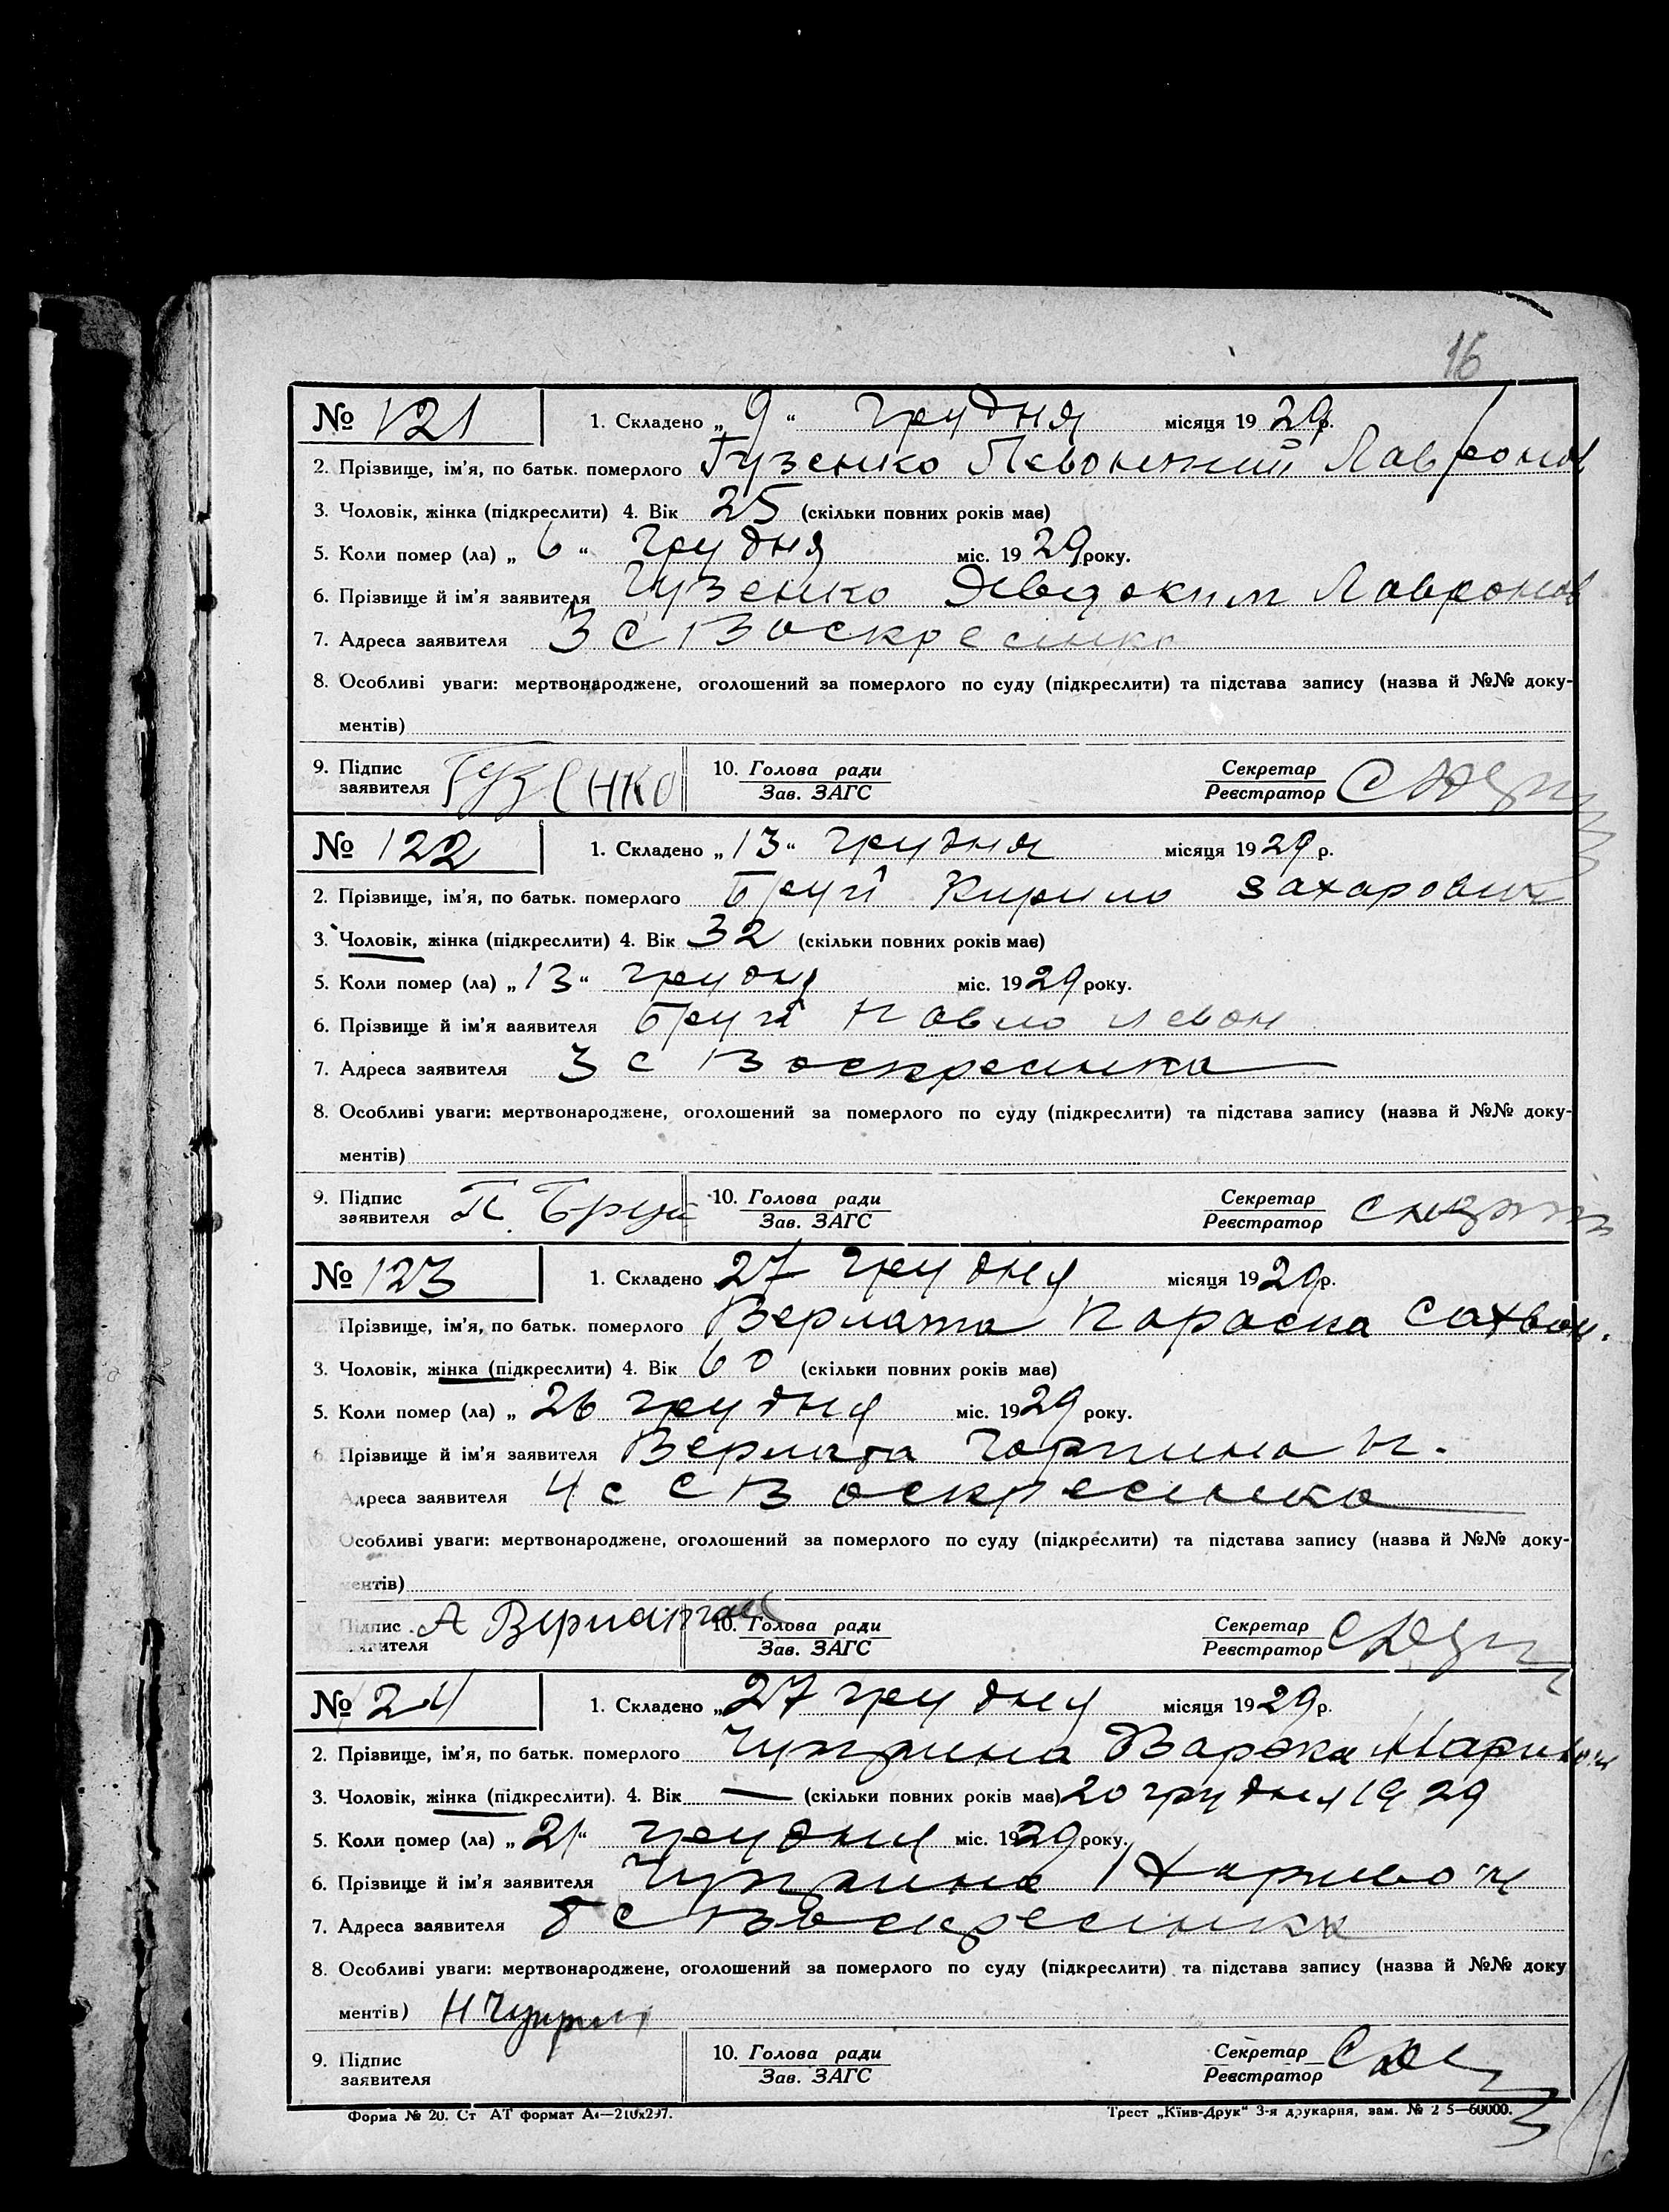 16
№ 121 1. Складено „ 9 “ грудня місяця 19 29 р.
2. Прізвище, ім'я, по батьк. померлого Гузенко Лавронов
3. Чоловік, жінка (підкреслити) 4. Вік 25 (скільки повних років має)
5. Коли помер (ла) „ 6 “ грудня міс. 19 29 року.
6. Прізвище й ім'я заявителя Гузенко Лавронов
7. Адреса заявителя З с Воскресинка
8. Особливі уваги: мертвонароджене, оголошений за померлого по суду (підкреслити) та підстава запису (назва й №№ доку-
ментів)
9. Підпис заявителя Гузенко 10. Голова ради Зав. ЗАГС Секретар Реєстратор
№ 122 1. Складено „ 13 “ грудня місяця 19 29 р.
2. Прізвище, ім'я, по батьк. померлого Бруй Кирило Захарович
3. Чоловік, жінка (підкреслити) 4. Вік 32 (скільки повних років має)
5. Коли помер (ла) „ 13 “ грудня міс. 19 29 року.
6. Прізвище й ім'я заявителя Бруй Павло Левон
7. Адреса заявителя З с Воскресинка
8. Особливі уваги: мертвонароджене, оголошений за померлого по суду (підкреслити) та підстава запису (назва й №№ доку-
ментів)
9. Підпис заявителя П. Бруй 10. Голова ради Зав. ЗАГС Секретар Реєстратор
№ 123 1. Складено 27 грудня місяця 19 29 р.
Прізвище, ім'я, по батьк. померлого Верлата Параска Сахвон.
3. Чоловік, жінка (підкреслити) 4. Вік 60 (скільки повних років має)
5. Коли помер (ла) „ 26 грудня міс. 19 29 року.
6. Прізвище й ім'я заявителя Верлата
Адреса заявителя 4 с с Воскресинка
Особливі уваги: мертвонароджене, оголошений за померлого по суду (підкреслити) та підстава запису (назва й №№ доку-
ментів)
Підпис заявителя А 10. Голова ради Зав. ЗАГС Секретар Реєстратор
№ 124 1. Складено „ 27 грудня місяця 19 29 р.
2. Прізвище, ім'я, по батьк. померлого Чуприна Варка
3. Чоловік, жінка (підкреслити). 4. Вік — (скільки повних років має) 20 грудня 1929
5. Коли помер (ла) „ 21 “ грудня міс. 19 29 року.
6. Прізвище й ім'я заявителя Чуприна
7. Адреса заявителя с Воскресинка
8. Особливі уваги: мертвонароджене, оголошений за померлого по суду (підкреслити) та підстава запису (назва й №№ доку
ментів) Н Чуприн
9. Підпис заявителя 10. Голова ради Зав. ЗАГС Секретар Реєстратор
Форма № 20. Ст АТ формат А4—210х297. Трест „Київ-Друк“ 3-я друкарня, зам. № 2 5—60000.